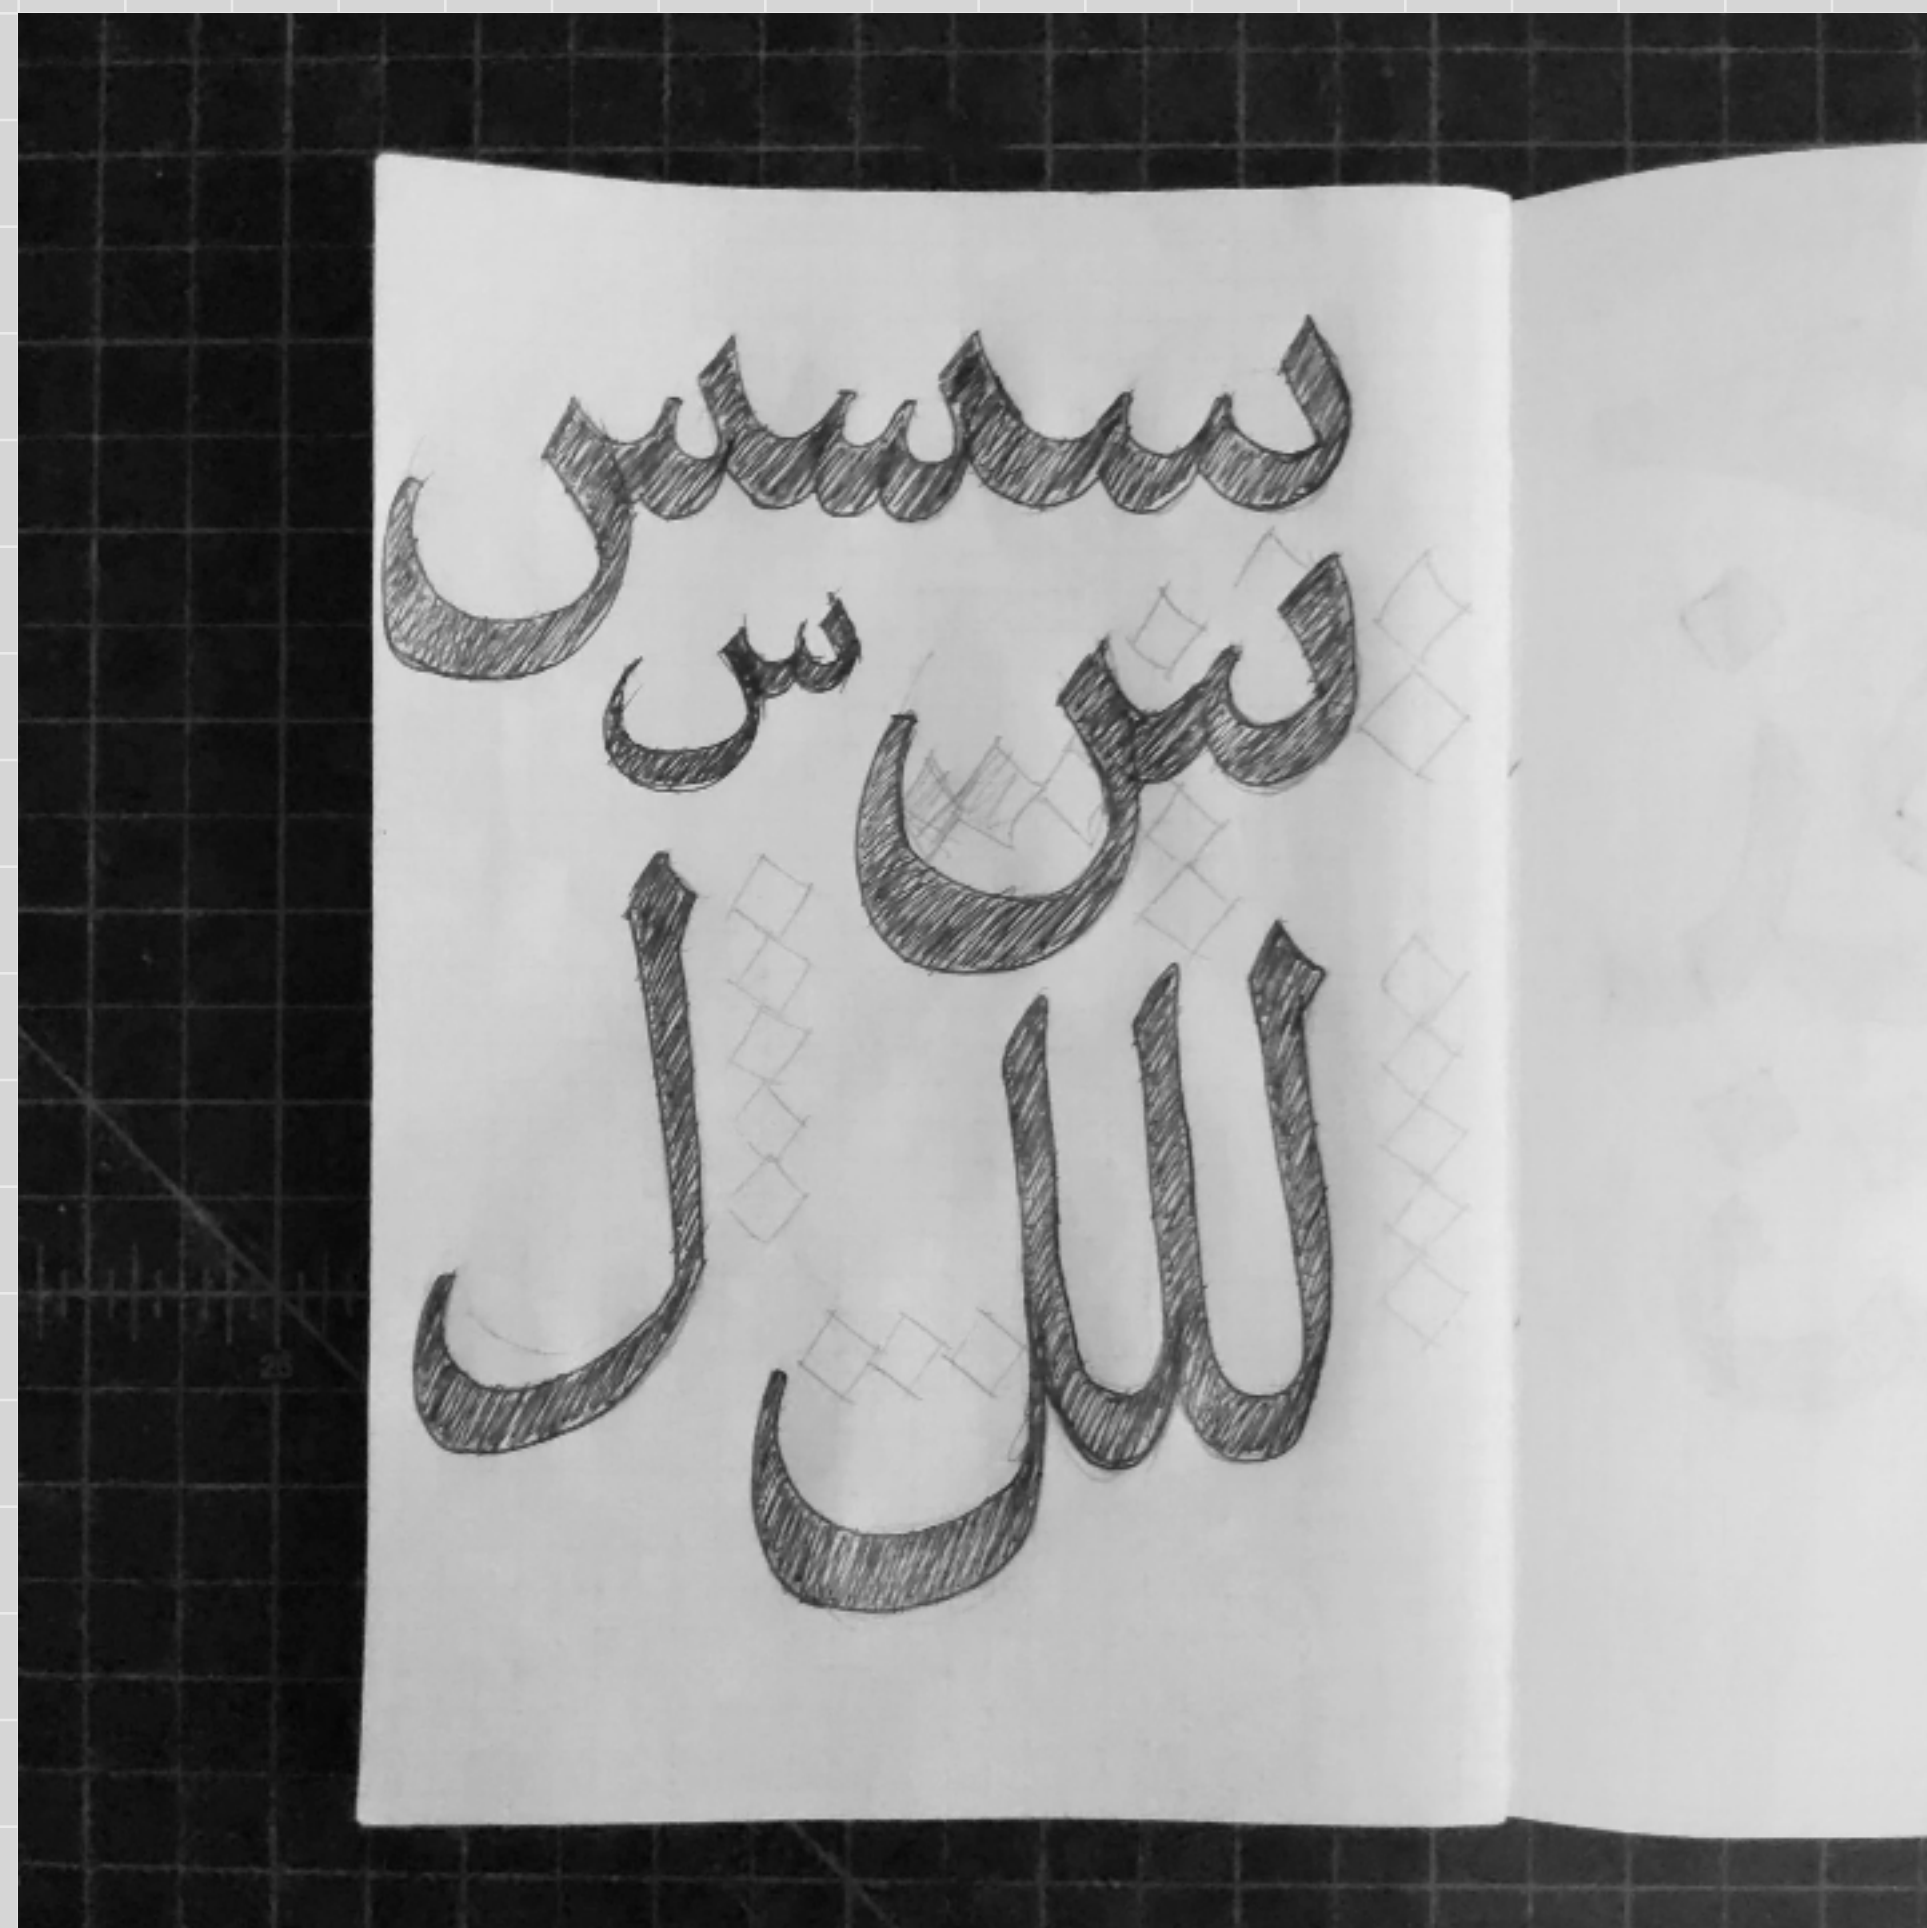 سسس
س س
للل ل